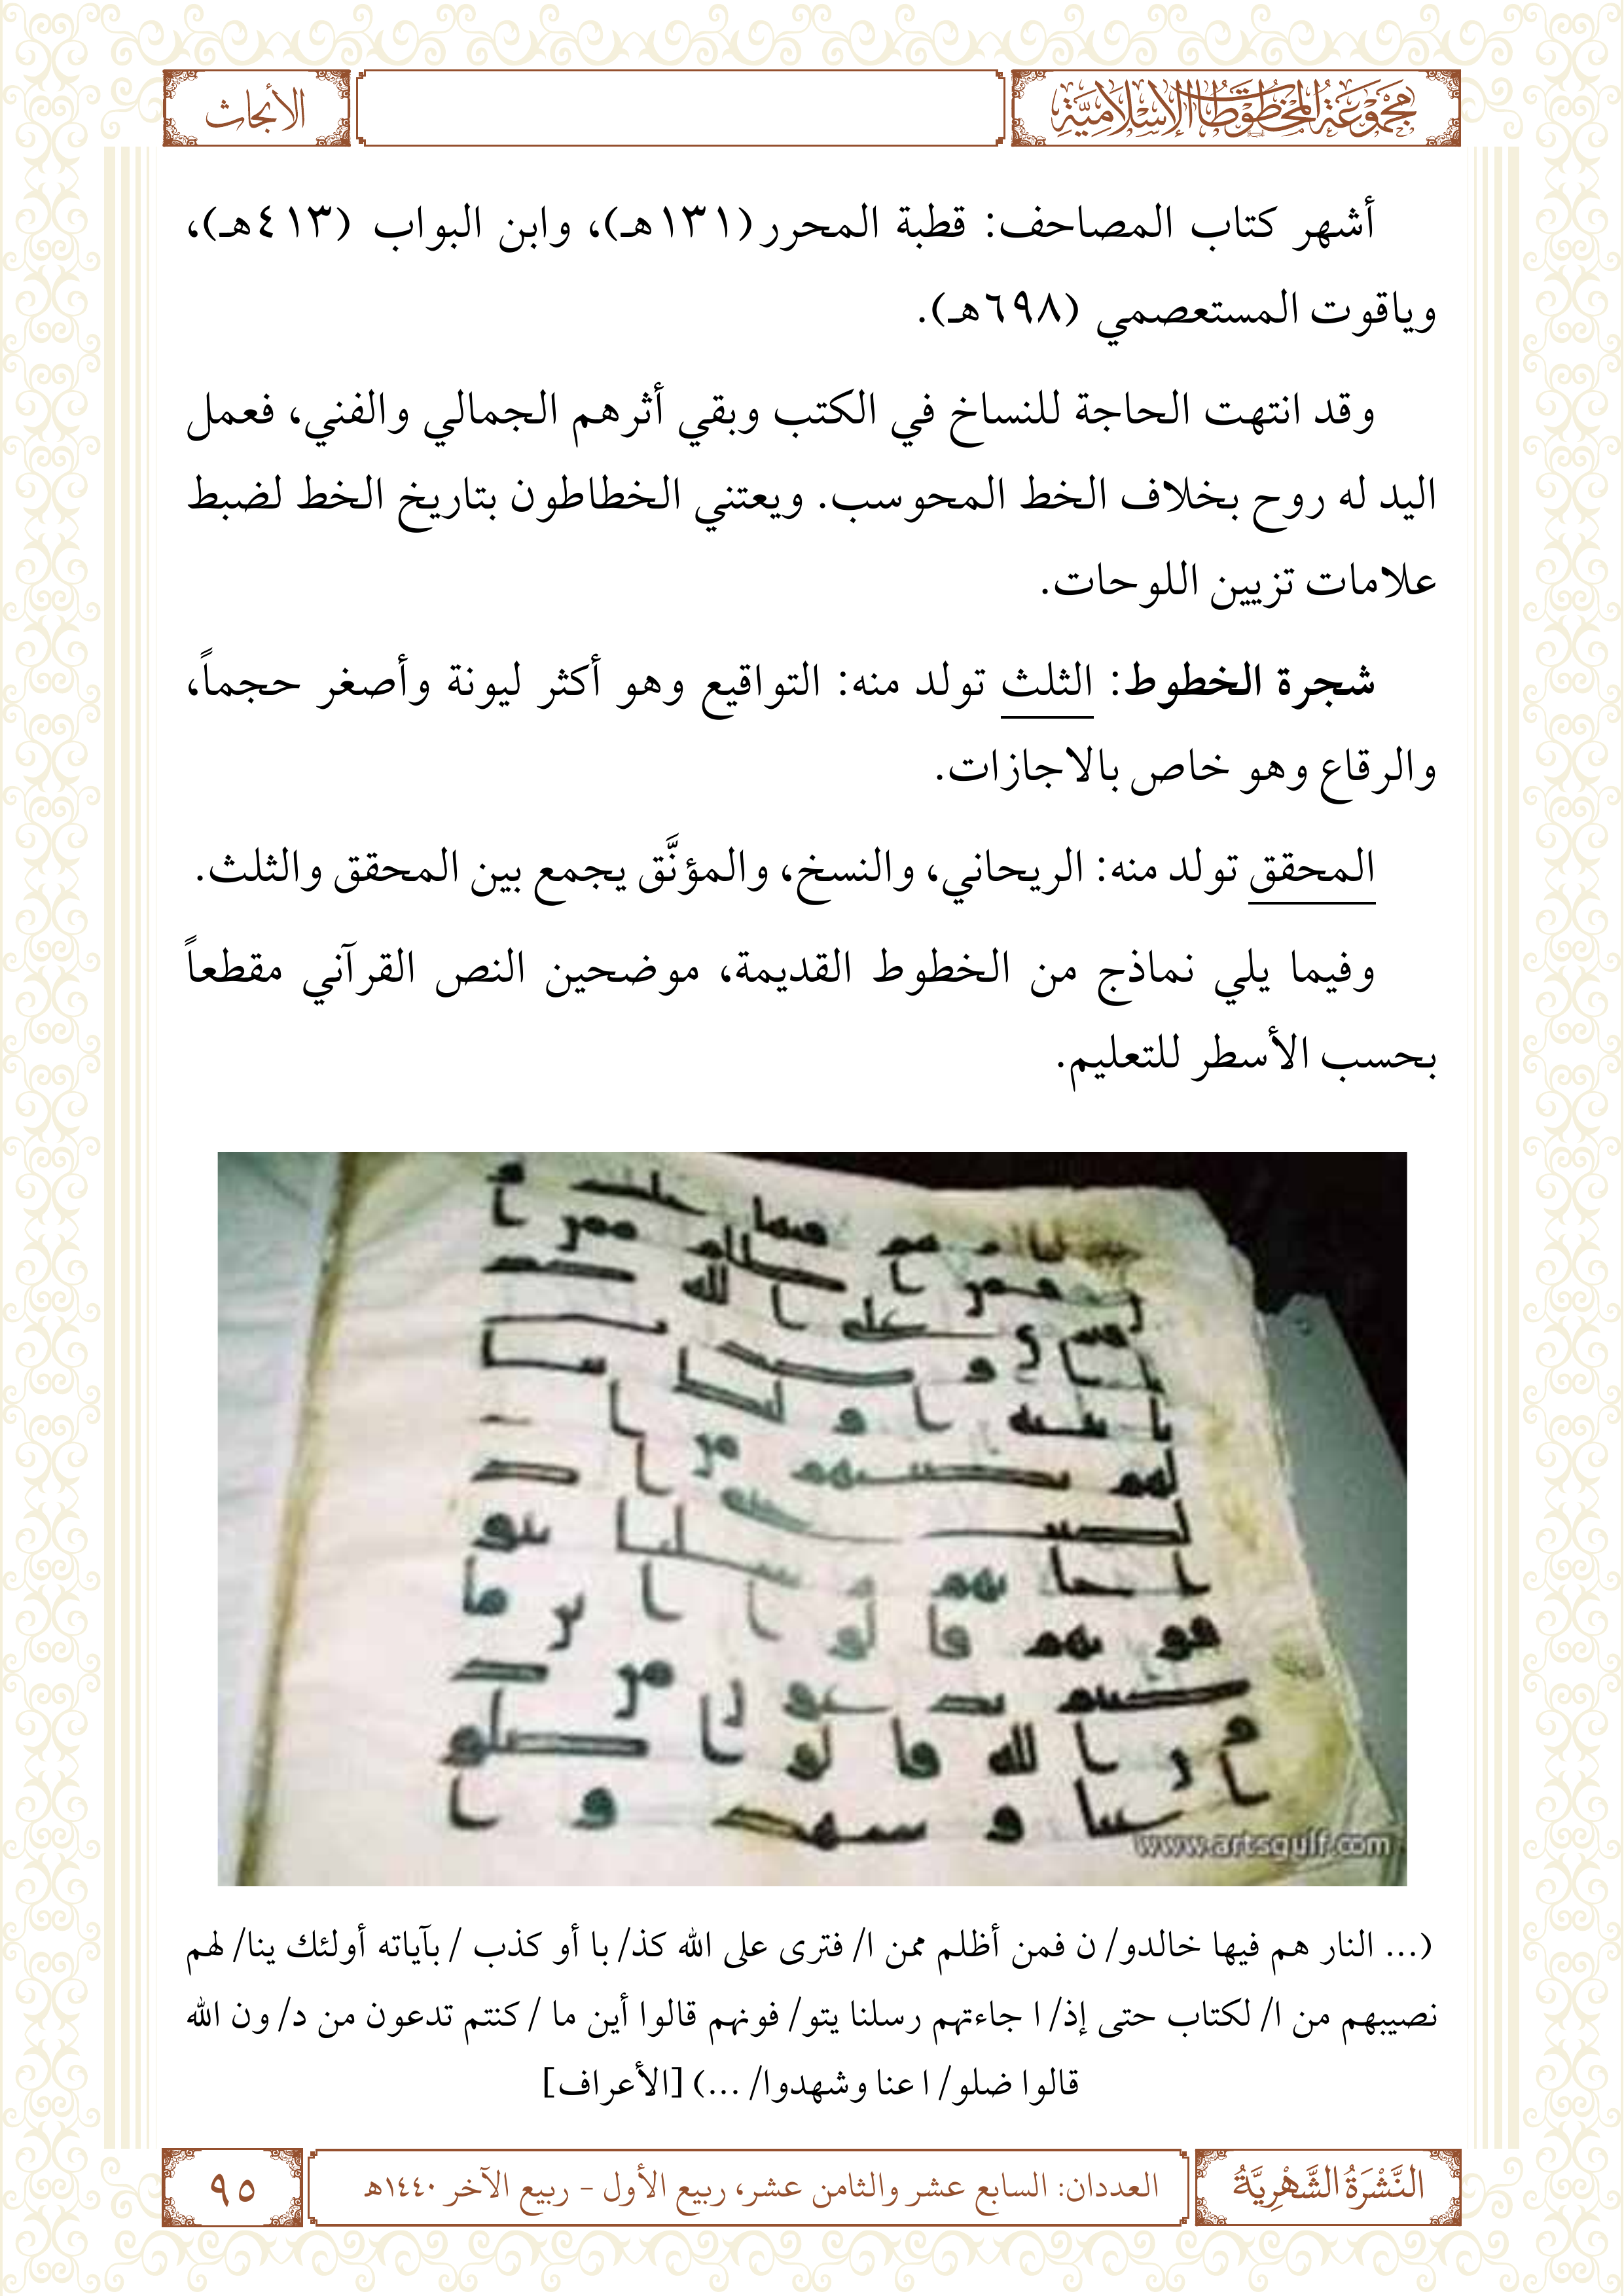 مجموعة المخطوطات الإسلامية
الأبحاث
أشهر كتاب المصاحف: قطبة المحرر (١٣١هـ)، وابن البواب (٤١٣هـ)،
وياقوت المستعصمي (٦٩٨هـ).
وقد انتهت الحاجة للنساخ في الكتب وبقي أثرهم الجمالي والفني، فعمل
اليد له روح بخلاف الخط المحوسب. ويعتني الخطاطون بتاريخ الخط لضبط
علامات تزيين اللوحات.
شجرة الخطوط: الثلث تولد منه: التواقيع وهو أكثر ليونة وأصغر حجماً،
والرقاع وهو خاص بالاجازات.
المحقق تولد منه: الريحاني، والنسخ، والمؤنَّق يجمع بين المحقق والثلث.
وفيما يلي نماذج من الخطوط القديمة، موضحين النص القرآني مقطعاً
بحسب الأسطر للتعليم.
www.artsgulf.com
(... النار هم فيها خالدو/ ن فمن أظلم ممن ا/ فترى على الله كذ/ با أو كذب / بآياته أولئك ينا/ لهم
نصيبهم من ا/ لكتاب حتى إذ/ ا جاءتهم رسلنا يتو/ فونهم قالوا أين ما / كنتم تدعون من د/ ون الله
قالوا ضلو/ ا عنا وشهدوا/ ...) [الأعراف]
النَّشْرَةُ الشَّهْرِيَّةُ
العددان: السابع عشر والثامن عشر، ربيع الأول - ربيع الآخر ١٤٤٠هـ
٩٥